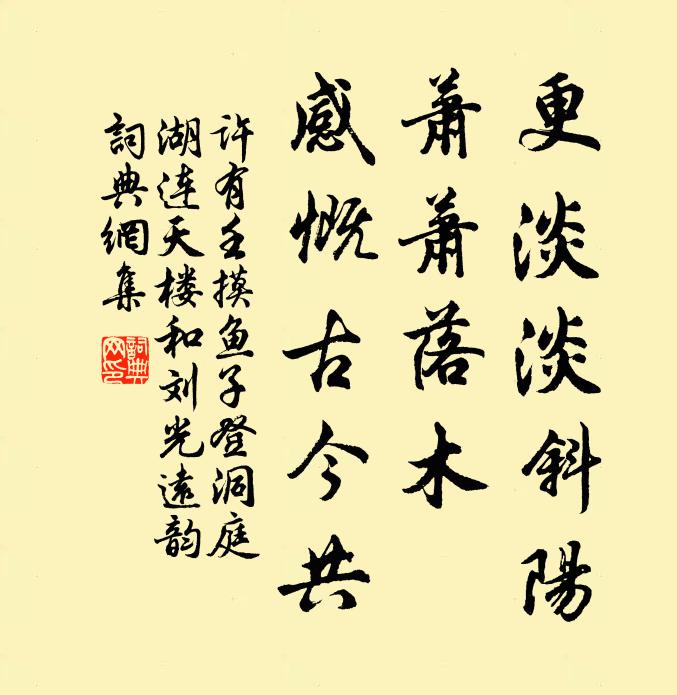 更淡淡斜陽
蕭蕭落木
感慨古今共
许有壬摸鱼子登洞庭
湖连天楼和刘光遠韵
詞典網集
詞典網印